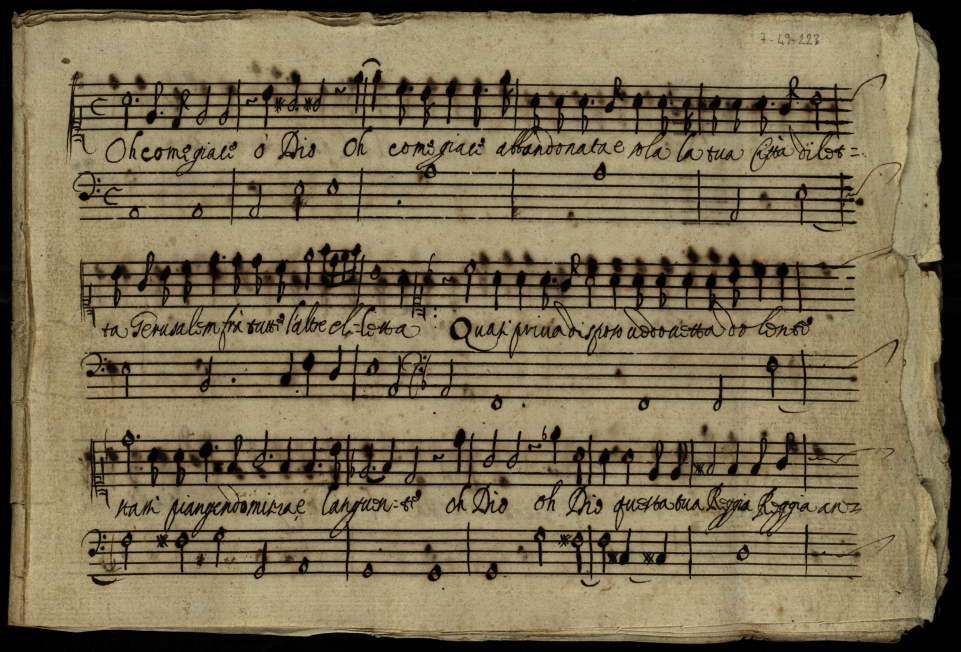 7-49-223
Oh come giace ò Dio Oh come giace abbandonata e sola la tua Città dilet=
ta Gerusalem frà tutte l'altre el=letta Quasi priva di sposo vedovetta dolente
stassi piangendo misera e languen=te oh Dio oh Dio questa tua Reggia Reggia an=